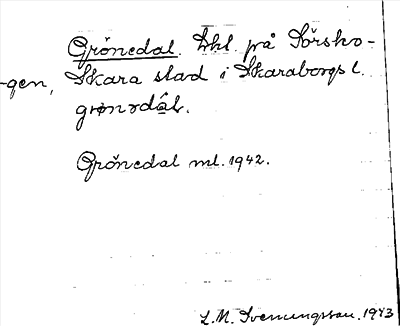 Grönedal. Lhl. på Sörsko-
-gen, Skara stad i Skaraborgs l.
grønrdál.
Grönedal ml. 1942.
L. M. Svenungsson. 1943